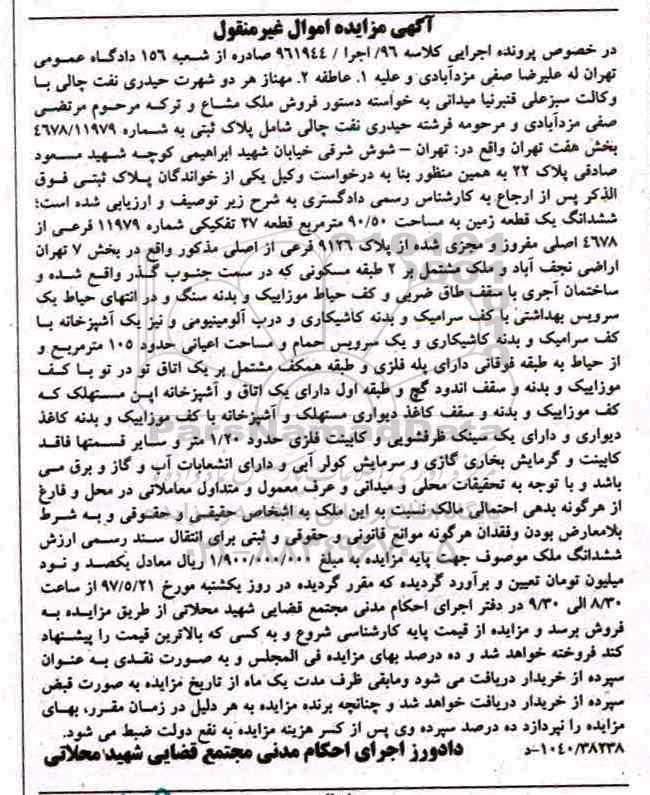 آگهی مزایده اموال غیرمنقول
در خصوص پرونده اجرایی کلاسه ۹۶/ اجرا / ۹۶۱۹۴۴ صادره از شعبه ۱۵۶ دادگاه عمومی
تهران له علیرضا صفی مزدآبادی و علیه ۱. عاطفه ۲. مهناز هر دو شهرت حیدری نفت چالی با
وکالت سبزعلی قنبرنیا میدانی به خواسته دستور فروش ملک مشاع و ترکه مرحوم مرتضی
صفی مزدآبادی و مرحومه فرشته حیدری نفت چالی شامل پلاک ثبتی به شماره ۴۶۷۸/۱۱۹۷۹
بخش هفت تهران واقع در: تهران – شوش شرقی خیابان شهید ابراهیمی کوچه شهید مسعود
صادقی پلاک ۲۲ به همین منظور بنا به درخواست وکیل یکی از خواندگان پلاک ثبتی فوق
الذکر پس از ارجاع به کارشناس رسمی دادگستری به شرح زیر توصیف و ارزیابی شده است؛
ششدانگ یک قطعه زمین به مساحت ۹۰/۵۰ مترمربع قطعه ۲۷ تفکیکی شماره ۱۱۹۷۹ فرعی از
۴۶۷۸ اصلی مفروز و مجزی شده از پلاک ۹۱۲۶ فرعی از اصلی مذکور واقع در بخش ۷ تهران
اراضی نجف آباد و ملک مشتمل بر ۲ طبقه مسکونی که در سمت جنوب گذر واقع شده و
ساختمان آجری با سقف طاق ضربی و کف حیاط موزاییک و بدنه سنگ و در انتهای حیاط یک
سرویس بهداشتی با کف سرامیک و بدنه کاشیکاری و درب آلومینیومی و نیز یک آشپزخانه با
کف سرامیک و بدنه کاشیکاری و یک سرویس حمام و مساحت اعیانی حدود ۱۰۵ مترمربع و
از حیاط به طبقه فوقانی دارای پله فلزی و طبقه همکف مشتمل بر یک اتاق تو در تو با کف
موزاییک و بدنه و سقف اندود گچ و طبقه اول دارای یک اتاق و آشپزخانه اپن مستهلک که
کف موزاییک و بدنه و سقف کاغذ دیواری مستهلک و آشپزخانه با کف موزاییک و بدنه کاغذ
دیواری و دارای یک سینک ظرفشویی و کابینت فلزی حدود ۱/۲۰ متر و سایر قسمتها فاقد
کابینت و گرمایش بخاری گازی و سرمایش کولر آبی و دارای انشعابات آب و گاز و برق می
باشد و با توجه به تحقیقات محلی و میدانی و عرف معمول و متداول معاملاتی در محل و فارغ
از هرگونه بدهی احتمالی مالک نسبت به این ملک به اشخاص حقیقی و حقوقی و به شرط
بلامعارض بودن وفقدان هرگونه موانع قانونی و حقوقی و ثبتی برای انتقال سند رسمی ارزش
ششدانگ ملک موصوف جهت پایه مزایده به مبلغ ۱/۹۰۰/۰۰۰/۰۰۰ ریال معادل یکصد و نود
میلیون تومان تعیین و برآورد گردیده که مقرر گردیده در روز یکشنبه مورخ ۹۷/۵/۲۱ از ساعت
۸/۳۰ الی ۹/۳۰ در دفتر اجرای احکام مدنی مجتمع قضایی شهید محلاتی از طریق مزایده به
فروش برسد و مزایده از قیمت پایه کارشناسی شروع و به کسی که بالاترین قیمت را پیشنهاد
کند فروخته خواهد شد و ده درصد بهای مزایده فی المجلس و به صورت نقدی به عنوان
سپرده از خریدار دریافت می شود ومابقی ظرف مدت یک ماه از تاریخ مزایده به صورت قبض
سپرده از خریدار دریافت خواهد شد و چنانچه برنده مزایده به هر دلیل در زمان مقرر، بهای
مزایده را نپردازد ده درصد سپرده وی پس از کسر هزینه مزایده به نفع دولت ضبط می شود.
۱۰۴۰/۳۸۲۳۸-د دادورز اجرای احکام مدنی مجتمع قضایی شهید محلاتی
ParsNamadData
۰۲۱-۸۸۳۴۹۶۷۰-۵